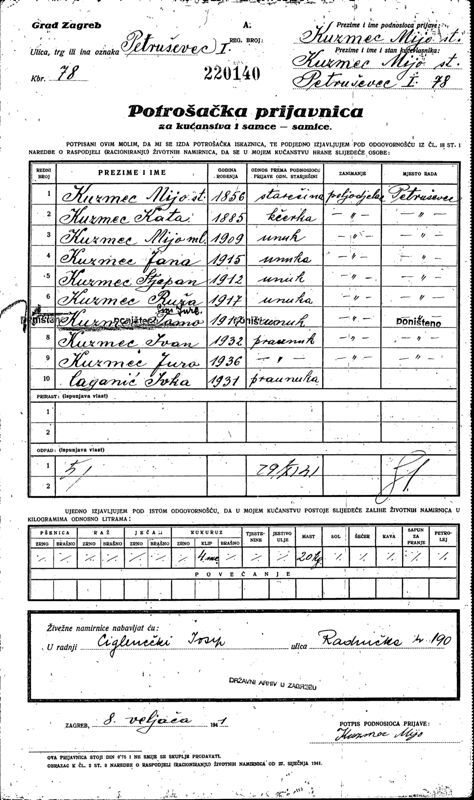 Grad Zagreb
A:
Prezime i ime podnosioca prijave:
Kuzmec Mijo st.
Ulica, trg ili ina oznaka Petruševec I.
REG. BROJ:
Prezime i ime i stan kućevlasnika:
Kuzmec Mijo st.
Kbr. 78
220140
Petruševec I. 78
Potrošačka prijavnica
za kućanstva i samce — samice.
POTPISANI OVIM MOLIM, DA MI SE IZDA POTROŠAČKA ISKAZNICA, TE PODJEDNO IZJAVLJUJEM POD ODGOVORNOŠĆU IZ ČL. 18 ST. 1
NAREDBE O RASPODJELI (RACIONIRANJU) ŽIVOTNIH NAMIRNICA, DA SE U MOJEM KUĆANSTVU HRANE SLIJEDEĆE OSOBE:
REDNI BROJ PREZIME I IME GODINA ROĐENJA ODNOS PREMA PODNOSIOCU PRIJAVE ODN. STARJEŠINI ZANIMANJE MJESTO RADA
1 Kuzmec Mijo st. 1856 starešina poljodjelac Petruševec
2 Kuzmec Kata 1885 kćerka — " — — " —
3 Kuzmec Mijo ml. 1909 unuk — " — — " —
4 Kuzmec Jana 1915 unuka — " — — " —
5 Kuzmec Stjepan 1912 unuk — " — — " —
6 Kuzmec Ruža 1917 unuka — " — — " —
Poništeno Kuzmec poništeno poništeno unuk — " — Poništeno
8 Kuzmec Ivan 1932 praunuk — " — — " —
9 Kuzmec Juro 1936 — " — — " — — " —
10 Caganić Ivka 1931 praunuka
PRIRAST: (Ispunjava vlast)
1
2
OTPAD: (Ispunjava vlast)
1
2
UJEDNO IZJAVLJUJEM POD ISTOM ODGOVORNOŠĆU, DA U MOJEM KUĆANSTVU POSTOJE SLIJEDEĆE ZALIHE ŽIVOTNIH NAMIRNICA U
KILOGRAMIMA ODNOSNO LITRAMA:
PŠENICA RAŽ JEČAM KUKURUZ TJESTENINE JESTIVO ULJE MAST SOL ŠEĆER KAVA SAPUN ZA PRANJE PETROLEJ
ZRNO BRAŠNO ZRNO BRAŠNO ZRNO BRAŠNO ZRNO KLIP BRAŠNO
% % % % % % % 4 % % % 20 kg % % % % %
POVEĆANJE
Živežne namirnice nabavljat ću:
U radnji Ciglenečki Josip ulica Radnička 190
DRŽAVNI ARHIV U ZAGREBU
ZAGREB, 8. veljača 1941
POTPIS PODNOSIOCA PRIJAVE:
Kuzmec Mijo
OVA PRIJAVNICA STOJI DIN 0'75 I NE SMIJE SE SKUPLJE PRODAVATI.
OBRAZAC K ČL. 2 ST. 2 NAREDBE O RASPODJELI (RACIONIRANJU) ŽIVOTNIH NAMIRNICA OD 27. SIJEČNJA 1941.